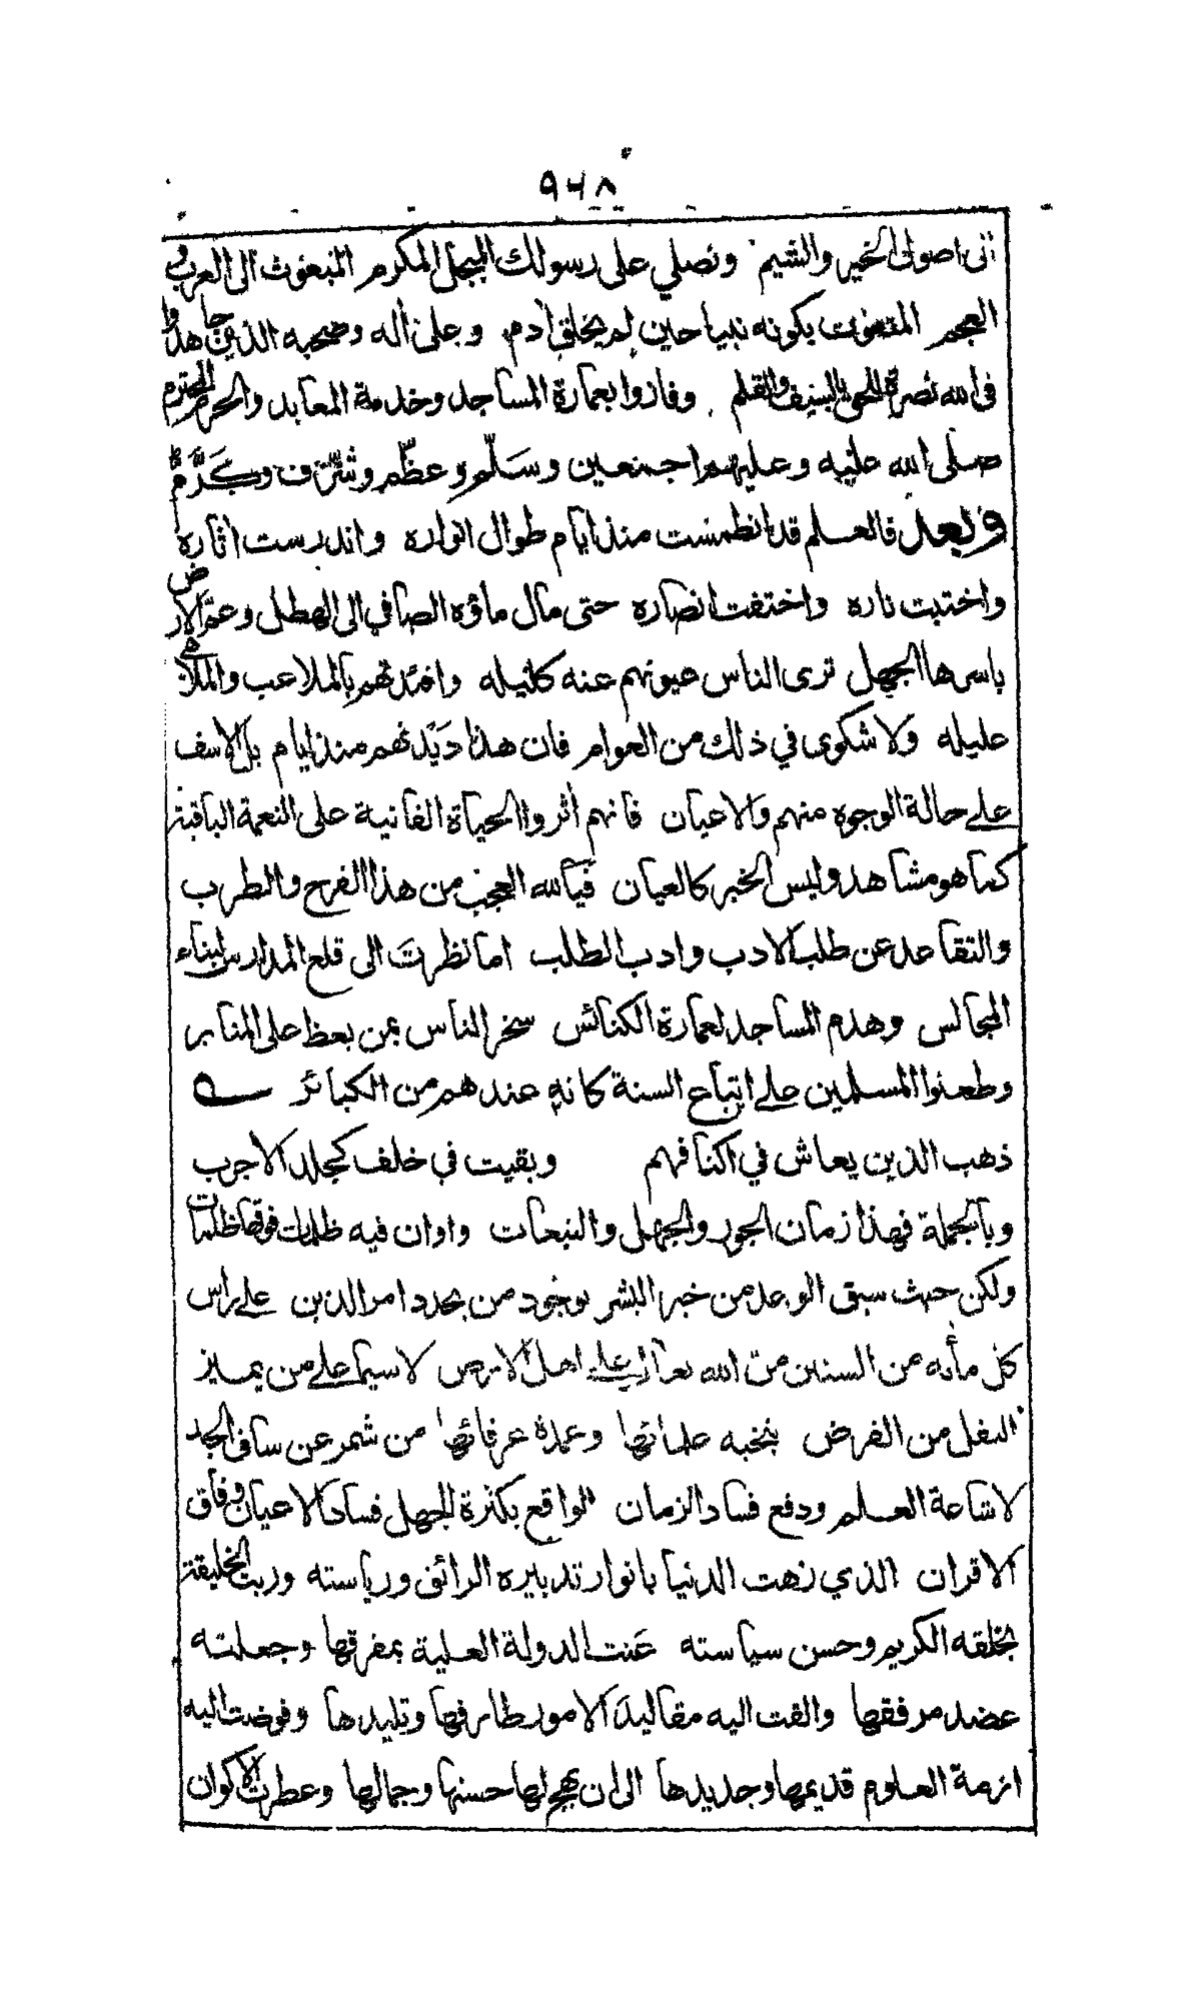 ٩٤٨
اصول الخير والشيم ونصلي على رسولك المبجل المكرم المبعوث الى العرب و
العجم المنعوت بكونه نبيا حين لم يخلق أدم وعلى أله وصحبه الذين جاهدوا
فى الله نصرة للحق بالسيف والقلم وفازوا بعمارة المساجد وخدمة المعابد والحرم المحترم
صلى الله عليه وعليهم اجمعين وسَلّم وعظّم وشَرّف وكَرَّمَ
وبعد فالعلم قد انطمست منذ ايام طوال انواره واندرست اثاره
واختبت ناره واختفت انصاره حتى مال ماؤه الصافي الى الهطل وعمّ الارض
باسرها الجهل ترى الناس عيونهم عنه كليله وافئدتهم بالملاعب والملاهي
عليله ولا شكوى في ذلك من العوام فان هذا دَيْدنهم منذ ايام بل الاسف
على حالة الوجوه منهم والاعيان فانهم أثروا الحياة الفانية على النعمة الباقية
كما هو مشاهد وليس الخبر كالعيان فيَالله العجب من هذا الفرح والطرب
والتقاعد عن طلب الادب وادب الطلب اما نظرتَ الى قلع المدارس لبناء
المجالس وهدم المساجد لعمارة الكنائس سخر الناس بمن يعظ على المنابر
وطعنوا المسلمين على اتباع السنة كانه عندهم من الكبائر
ذهب الذين يعاش في اكنافهم وبقيت في خلف كجلد الاجرب
وبالجملة فهذا زمان الجور والجهل والتبعات واوان فيه ظلمات فوقها ظلمات
ولكن حيث سبق الوعد من خبر البشر بوجود من يجدد امر الدين على راس
كل مأئه من السنين منّ الله تعالى على اهل الارض لاسيما على من يميز
النفل من الفرض بنخبه علمائها وعمدة عرفائها من شمر عن ساق الجد
لاشاعة العلم ودفع فساد الزمان الواقع بكثرة الجهل فساد الاعيان وفاق
الاقران الذي زهت الدنيا بانوار تدبيره الرائق ورياسته وربت الخليقة
بخلقه الكريم وحسن سياسته عَنت الدولة العلية بمفرقها وجعلته
عضد مرفقها والقت اليه مقاليدَ الامور طارفها وتليدها وفوضت اليه
ازمة العلوم قديمها وجديدها الى ان بهج لها حسنها وجمالها وعطرت الاكوان